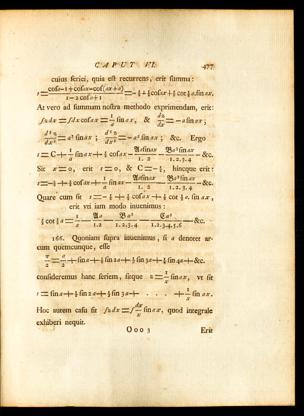 CAPUT VI. 477
cuius seriei, quia est recurrens, erit summa:
s = (cosa−1+cosax−cos(ax+a))/(1−2cosa+1) = −½+½cosax+½cot½a.sinax.
At vero ad summam nostra methodo exprimendam, erit:
∫udx = ∫dx cosax = (1/a) sinax, & du/dx = −a sinax;
d²u/dx² = a² sinax ; d³u/dx³ = −a³ sinax ; &c. Ergo
s = C + (1/a) sinax + ½ cosax − (Aasinax)/(1.2) − (Ba³sinax)/(1.2.3.4) − &c.
Sit x = 0, erit s = 0, & C = −½, hincque erit:
s = −½ + ½ cosax + (1/a) sinax − (Aasinax)/(1.2) − (Ba³sinax)/(1.2.3.4) − &c.
Quare cum sit s = −½ + ½ cosax + ½ cot ½ a. sin ax,
erit vti iam modo inuenimus:
½ cot ½ a = 1/a − Aa/(1.2) − Ba³/(1.2.3.4) − Ca⁵/(1.2.3.4.5.6) − &c.
166. Quoniam supra inuenimus, si a denotet ar-
cum quemcunque, esse
π/2 = a/2 + sin a + ½ sin 2a + ⅓ sin 3a + ¼ sin 4a + &c.
consideremus hanc seriem, sitque z = (1/x) sin ax, vt sit
s = sin a + ½ sin 2a + ⅓ sin 3a + . . . . + (1/x) sin ax.
Hoc autem casu fit ∫zdx = ∫(dx/x) sin ax, quod integrale
exhiberi nequit.
Ooo 3 Erit